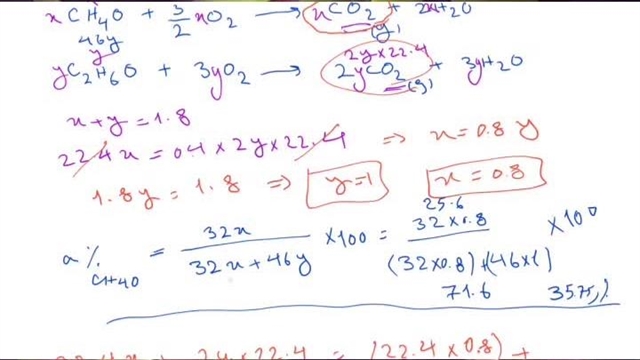 xCH4O + 3/2 xO2 → xCO2 (g) + 2xH2O
46y
y 2y×22.4
yC2H6O + 3yO2 → 2yCO2 (g) + 3yH2O
x+y=1.8
22.4x = 0.4 × 2y × 22.4 ⇒ x=0.8y
1.8y = 1.8 ⇒ y=1 x=0.8
25.6
a%CH4O = 32x / 32x+46y ×100 = 32×0.8 / (32×0.8)+(46×1) ×100
71.6 35.75%
22.4x + 2y×22.4 = (22.4×0.8) +